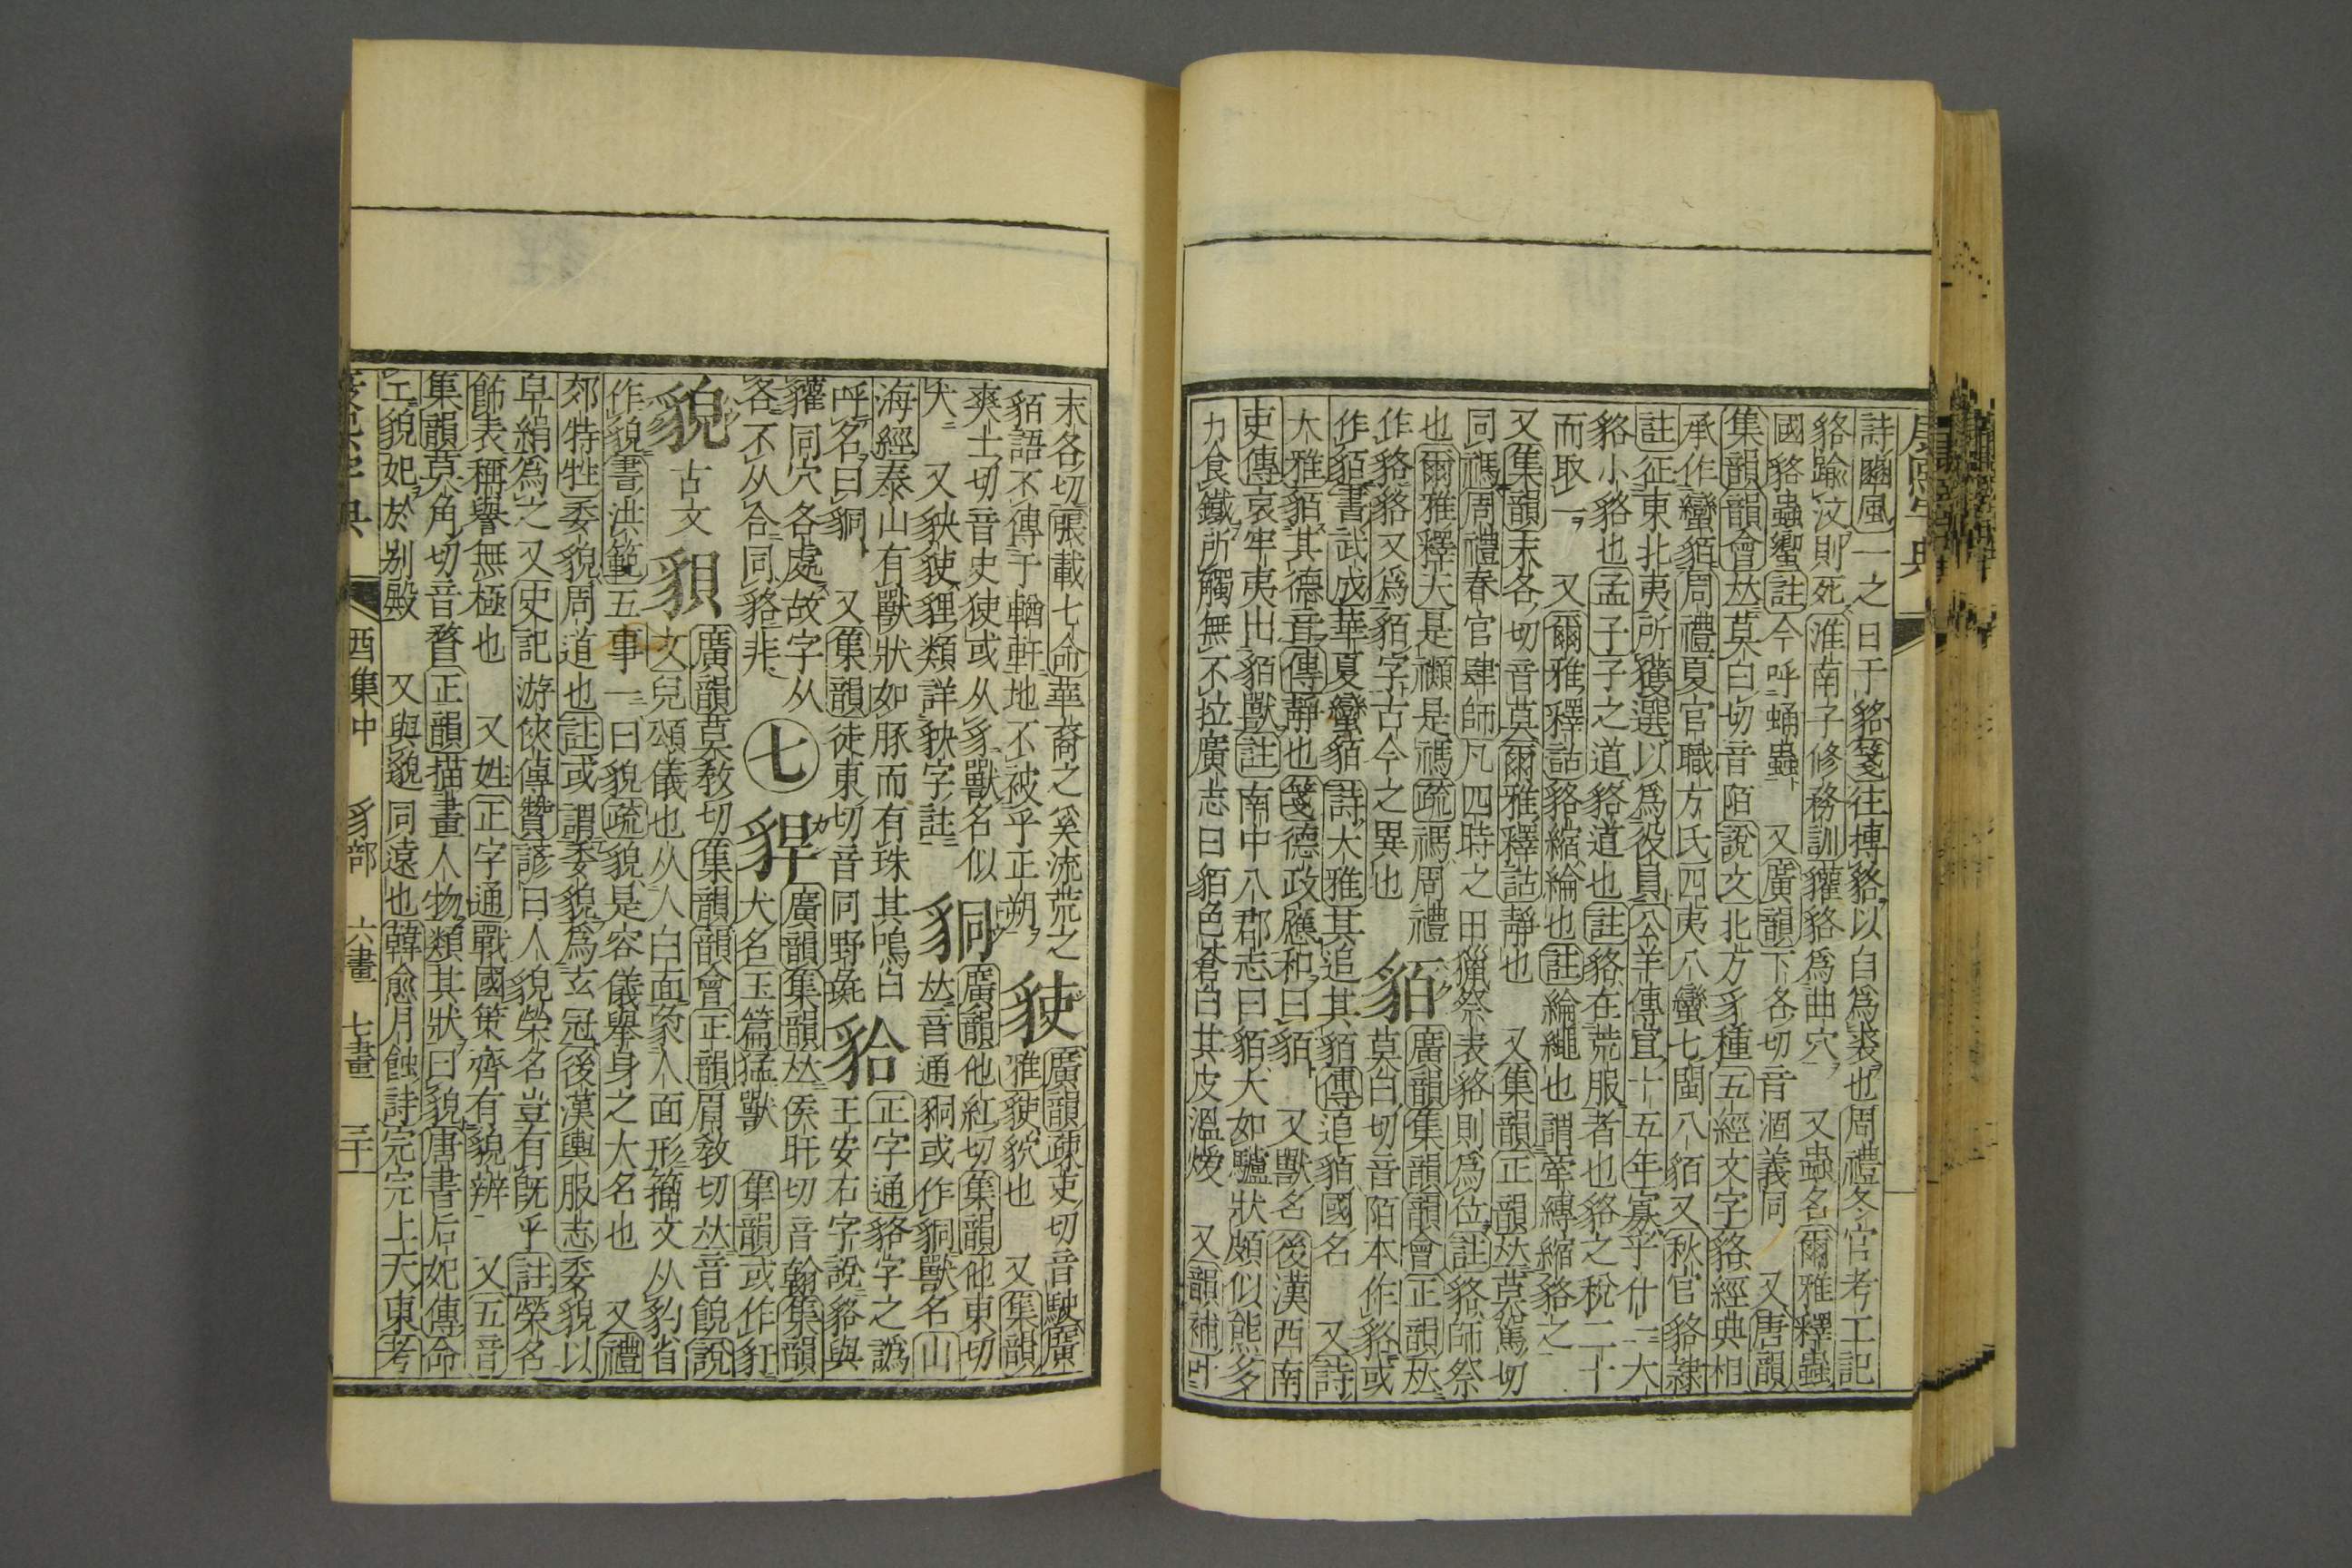 詩豳風一之日于貉箋往搏貉以自爲裘也周禮冬官考工記
貉踰汶則死淮南子修務訓貛貉爲曲穴又蟲名爾雅釋蟲
國貉蟲蠁註今呼蛹蟲又廣韻下各切音涸義同又唐韻
集韻韻會𠀤莫白切音陌說文北方豸種五經文字貉經典相
承作蠻貊周禮夏官職方氏四夷八蠻七閩八貊又秋官貉隸
註征東北夷所獲選以爲役員公羊傳宣十五年寡乎什一大
貉小貉也孟子子之道貉道也註貉在荒服者也貉之稅二十
而取一又爾雅釋詁貉縮綸也註綸繩也謂牽縛縮貉之
又集韻末各切音莫爾雅釋詁靜也又集韻正韻𠀤莫駕切
同禡周禮春官肆師凡四時之田獵祭表貉則爲位註貉師祭
也爾雅釋天是禷是禡疏禡周禮
作貉貉又爲貊字古今之異也貊廣韻集韻韻會正韻𠀤
莫白切音陌本作貉或
作貊書武成華夏蠻貊詩大雅其追其貊傳追貊國名又詩
大雅貊其德音傳靜也箋德政應和曰貊又獸名後漢西南
吏傳哀牢夷出貊獸註南中八郡志曰貊大如驢狀頗似熊多
力食鐵所觸無不拉廣志曰貊色蒼白其皮溫煖又韻補叶
康熙字典
末各切張載七命華裔之夷流荒之
貊語不傳于輶軒地不被乎正朔䝙廣韻疎吏切音駛廣
雅䝙貁也又集韻
爽士切音史㹬或从豸獸名似
犬又䝙䝙貍類詳䝙字註狪廣韻他紅切集韻他東切
𠀤音通狪或作狪獸名山
海經泰山有獸狀如豚而有珠其鳴自
呼名曰狪又集韻徒東切音同野彘貉正字通貉字之譌
王安石字說貉與
貛同穴各處故字从
各不从合同貉非七䝧廣韻集韻𠀤侯旰切音翰集韻
犬名玉篇猛獸集韻或作豻
貌古文䫉廣韻莫敎切集韻韻會正韻眉敎切𠀤音皃說
文皃頌儀也从人白面象人面形籀文从豹省
作貌書洪範五事一曰貌疏貌是容儀舉身之大名也又禮
郊特牲委貌周道也註或謂委貌爲玄冠後漢輿服志委貌以
皁絹爲之又史記游俠傳贊諺曰人貌榮名豈有旣乎註榮名
飾表稱譽無極也又姓正字通戰國策齊有貌辨又五音
集韻莫角切音瞀正韻描畫人物類其狀曰貌唐書后妃傳命
工貌妃於別殿又與邈同遠也韓愈月蝕詩完完上天東考
康熙字典 酉集中 豸部 六畫 七畫 三十